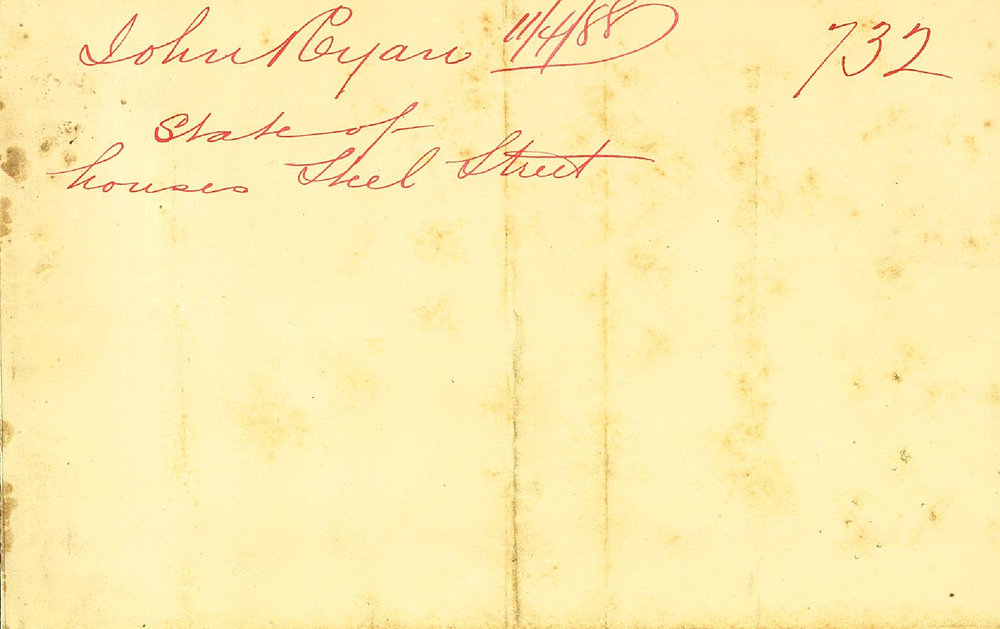 John Ryan 11/4/88 732
State of
houses Steel Street